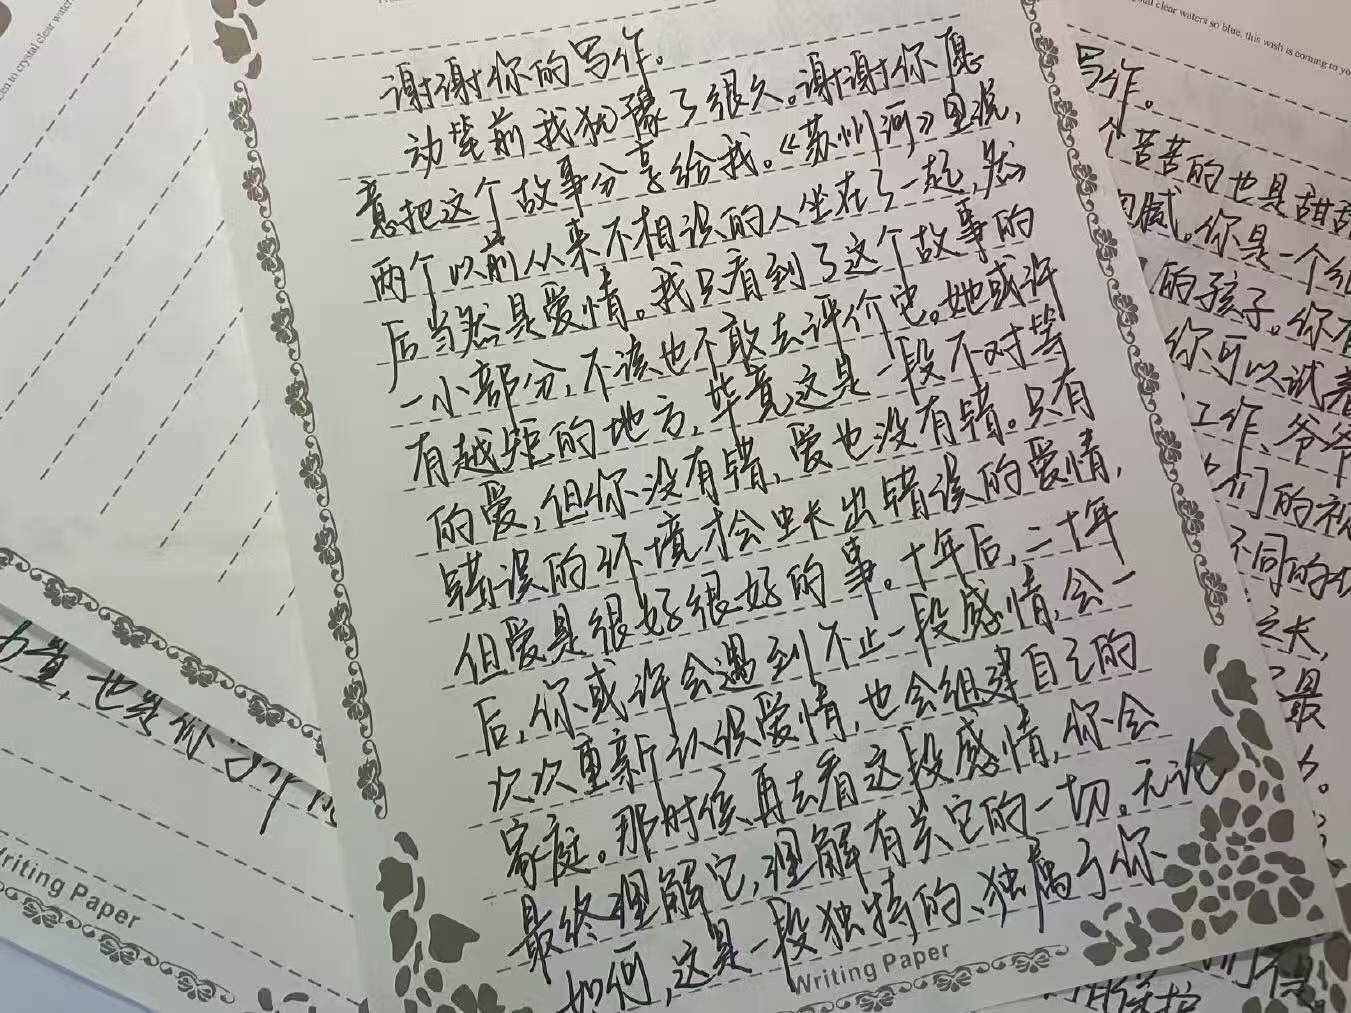 谢谢你的写作。
动笔前我犹豫了很久。谢谢你愿
意把这个故事分享给我。《苏州河》里说,
两个以前从来不相识的人坐在了一起,然
后当然是爱情。我只看到了这个故事的
一小部分,不该也不敢去评价它。她或许
有越距的地方,毕竟这是一段不对等
的爱,但你没有错,爱也没有错。只有
错误的环境才会生长出错误的爱情,
但爱是很好很好的事。十年后,二十年
后,你或许会遇到不止一段感情,会一
次次重新认识爱情,也会组建自己的
家庭。那时候再去看这段感情,你会
最终理解它,理解有关它的一切。无论
如何,这是一段独特的、独属于你
Writing Paper
写作。
个苦苦的也是甜甜
腻。你是一个
的孩子。你有
你可以试着
工作、爷爷
们的视
不同的
之长,
最
也是你
Writing Paper
to crystal clear water
crystal clear waters so blue, this wash is coming to yo